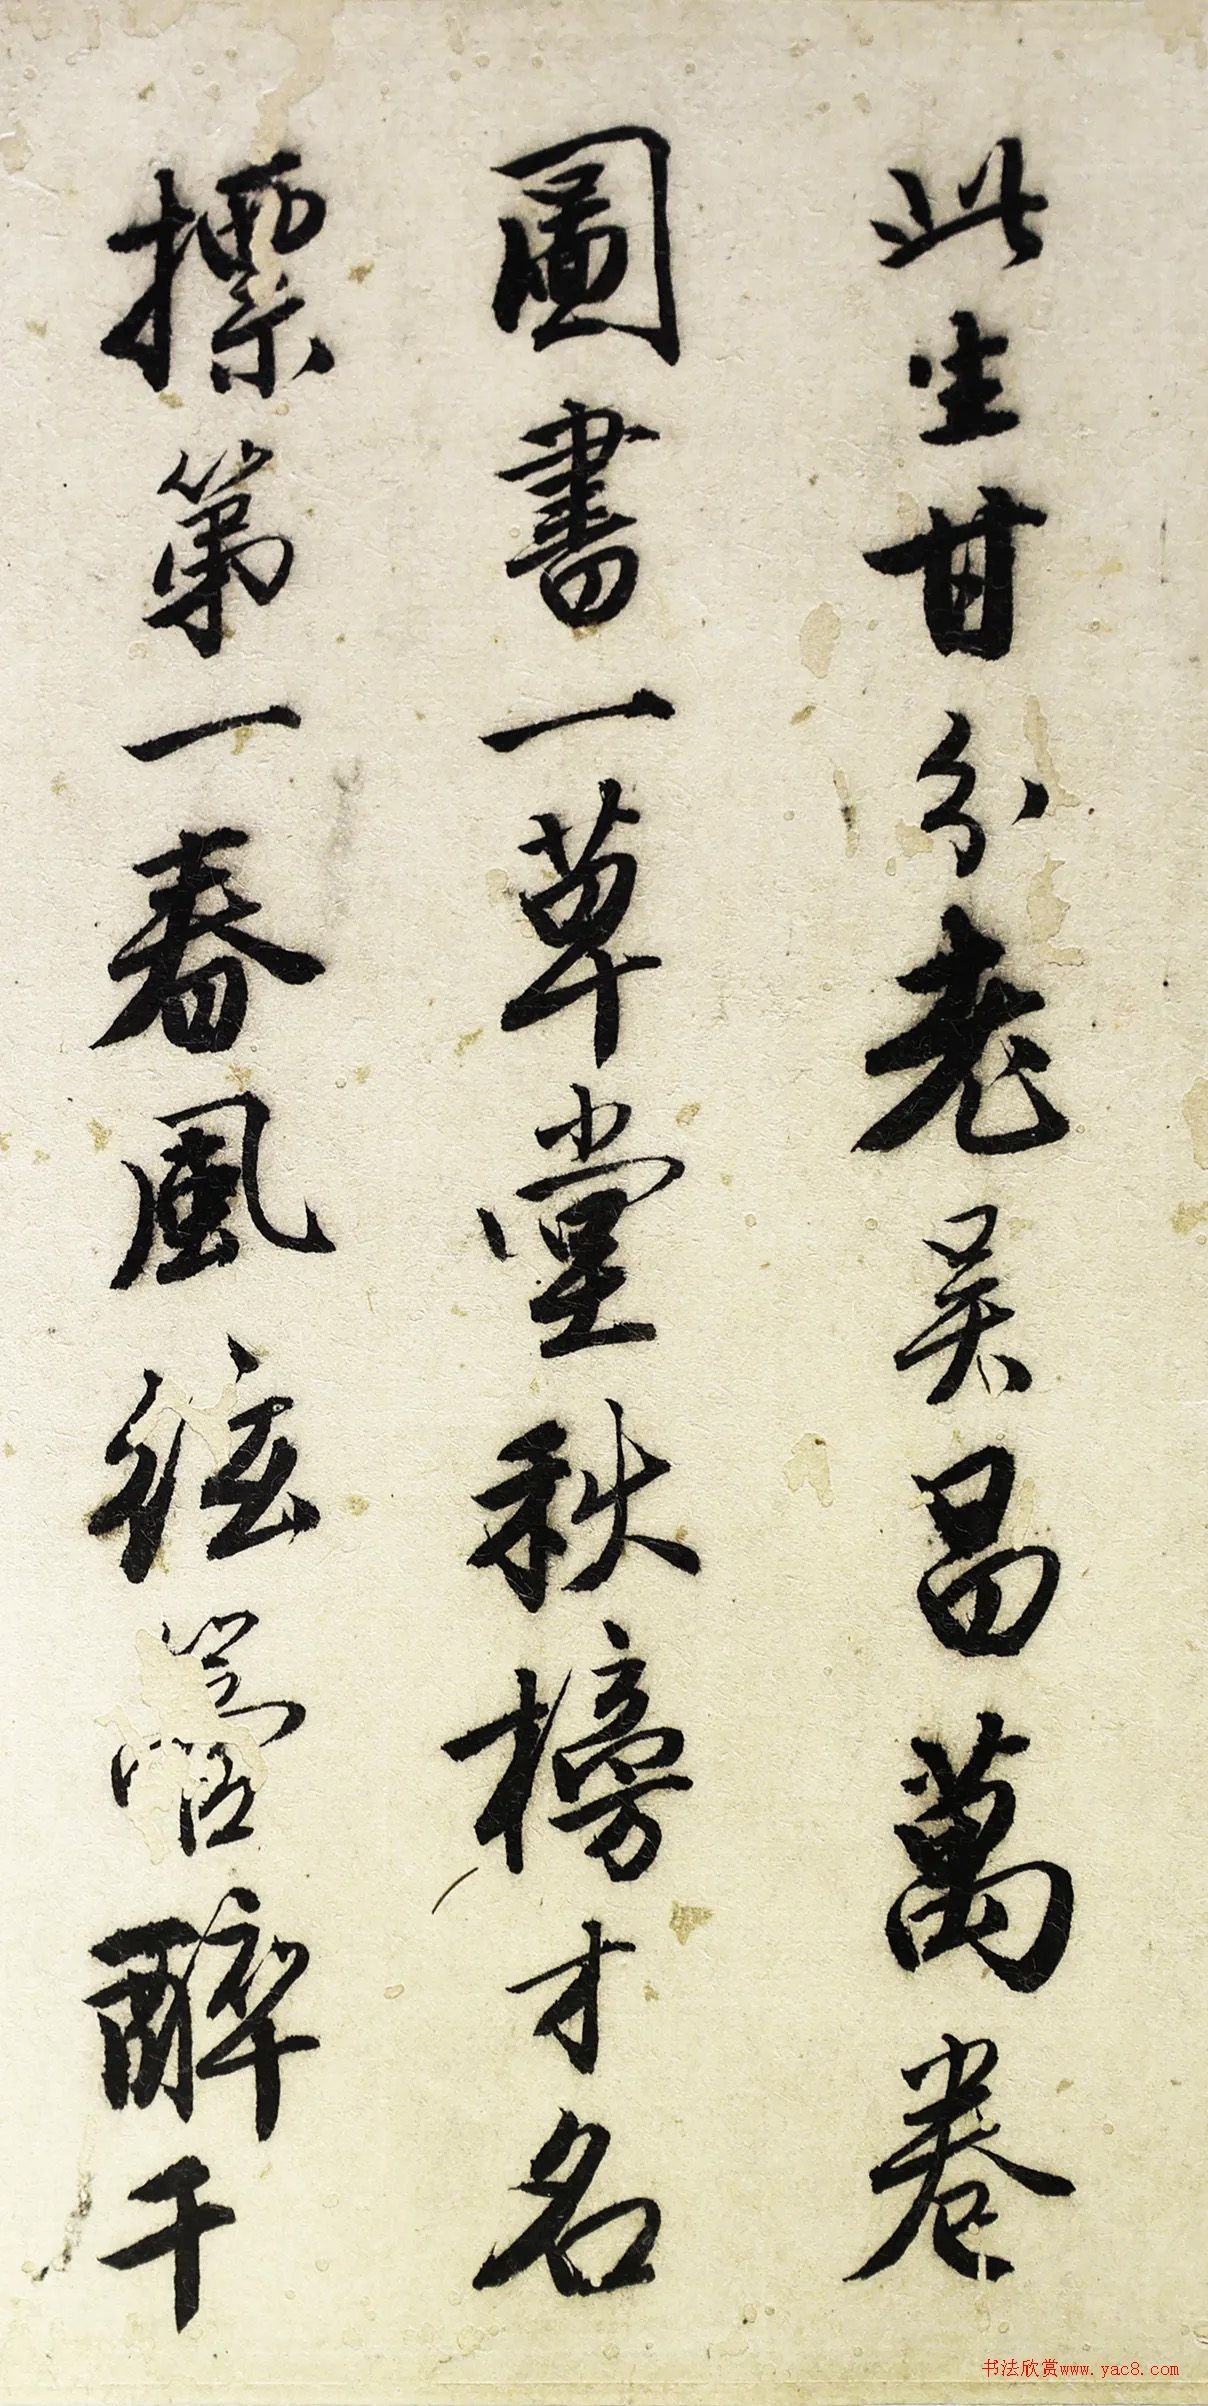 此生甘分老吳昌萬卷
圖書一草堂秋榜才名
標第一春風絃管醉千
书法欣赏www.yac8.com